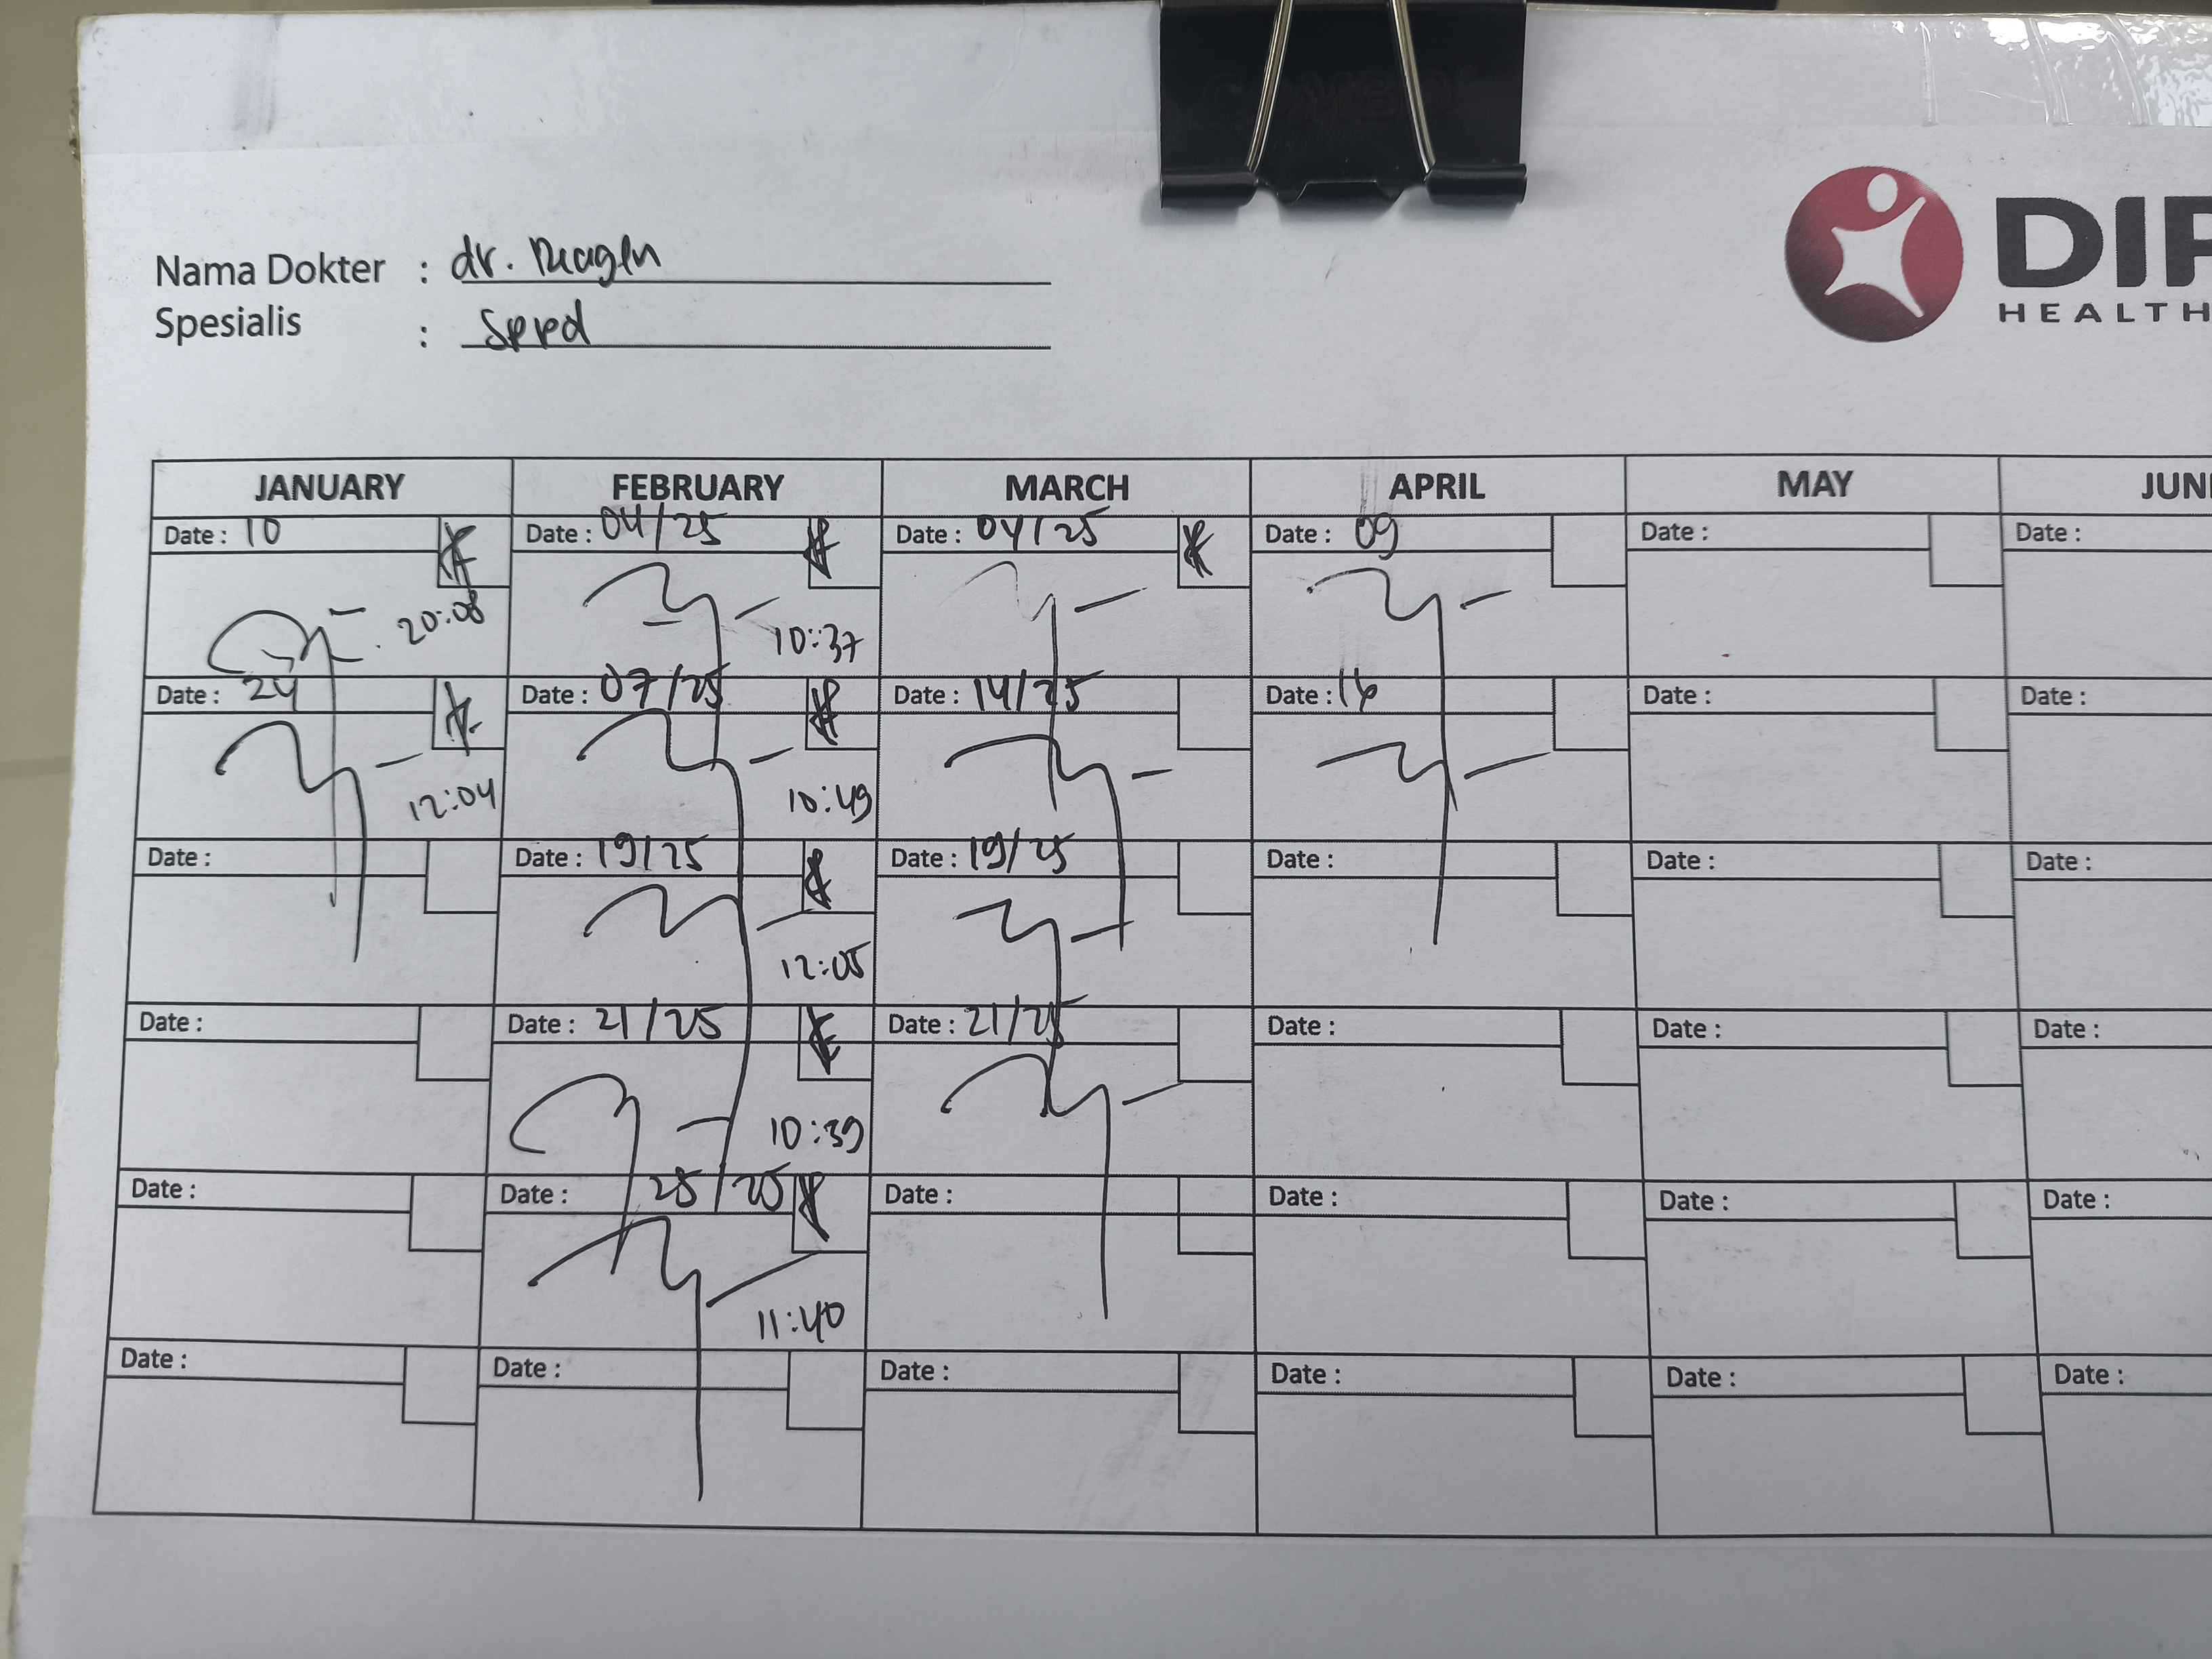 Nama Dokter : dr. Reagen
Spesialis : Sppd
DIP
HEALTH
JANUARY FEBRUARY MARCH APRIL MAY JUN
Date : 10 Date : 04/25 Date : 04/25 Date : 09 Date : Date :
20:08 10:37
Date : 24 Date : 07/25 Date : 14/25 Date : 16 Date : Date :
12:04 10:49
Date : Date : 19/25 Date : 19/25 Date : Date : Date :
12:05
Date : Date : 21/25 Date : 21/25 Date : Date : Date :
10:39
Date : Date : 25/25 Date : Date : Date : Date :
11:40
Date : Date : Date : Date : Date : Date :